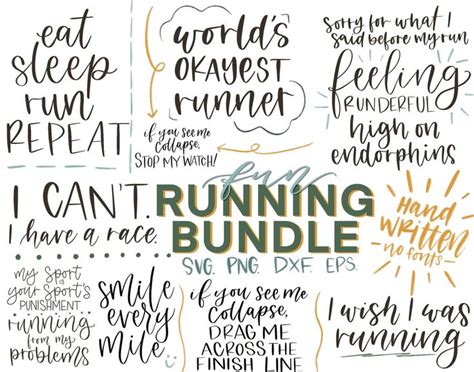 eat
sleep
run
REPEAT
world's
OKAYEST
runner
if you see me
collapse,
STOP MY WATCH!
Sorry for what I
said before my run
feeling
RUNDERFUL
high on
endorphins
I CAN'T.
I have a race.
fun
RUNNING
BUNDLE
SVG. PNG. DXF. EPS.
HAND
WRITTEN
no fonts
my Sport
is
your Sport's
PUNISHMENT
running
from my
problems
smile
every
mile
if you see me
collapse,
DRAG ME
ACROSS THE
FINISH LINE
I wish I was
running